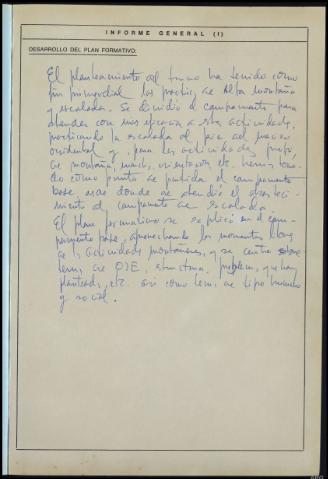 INFORME GENERAL (I)
DESARROLLO DEL PLAN FORMATIVO:
El planteamiento del turno ha tenido como
fin primordial las practicas de Alta montaña
y escalada. Se dividió el campamento para
atender con mas eficacia a estas actividades,
practicando la escalada el
occidental y, para las actividades
de montaña, march, orientación etc. hemos toma-
do como punto de partida el campamento
base desde donde se atendió el abasteci-
miento al campamento de escalada
El plan formativo se explicó en el cam-
pamento base, aprovechando los momentos
de actividades montañeras, y se centra sobre
temas de OJE, estructura, problemas, que hay
planteados, etc. así como temas de tipo humano
y social.